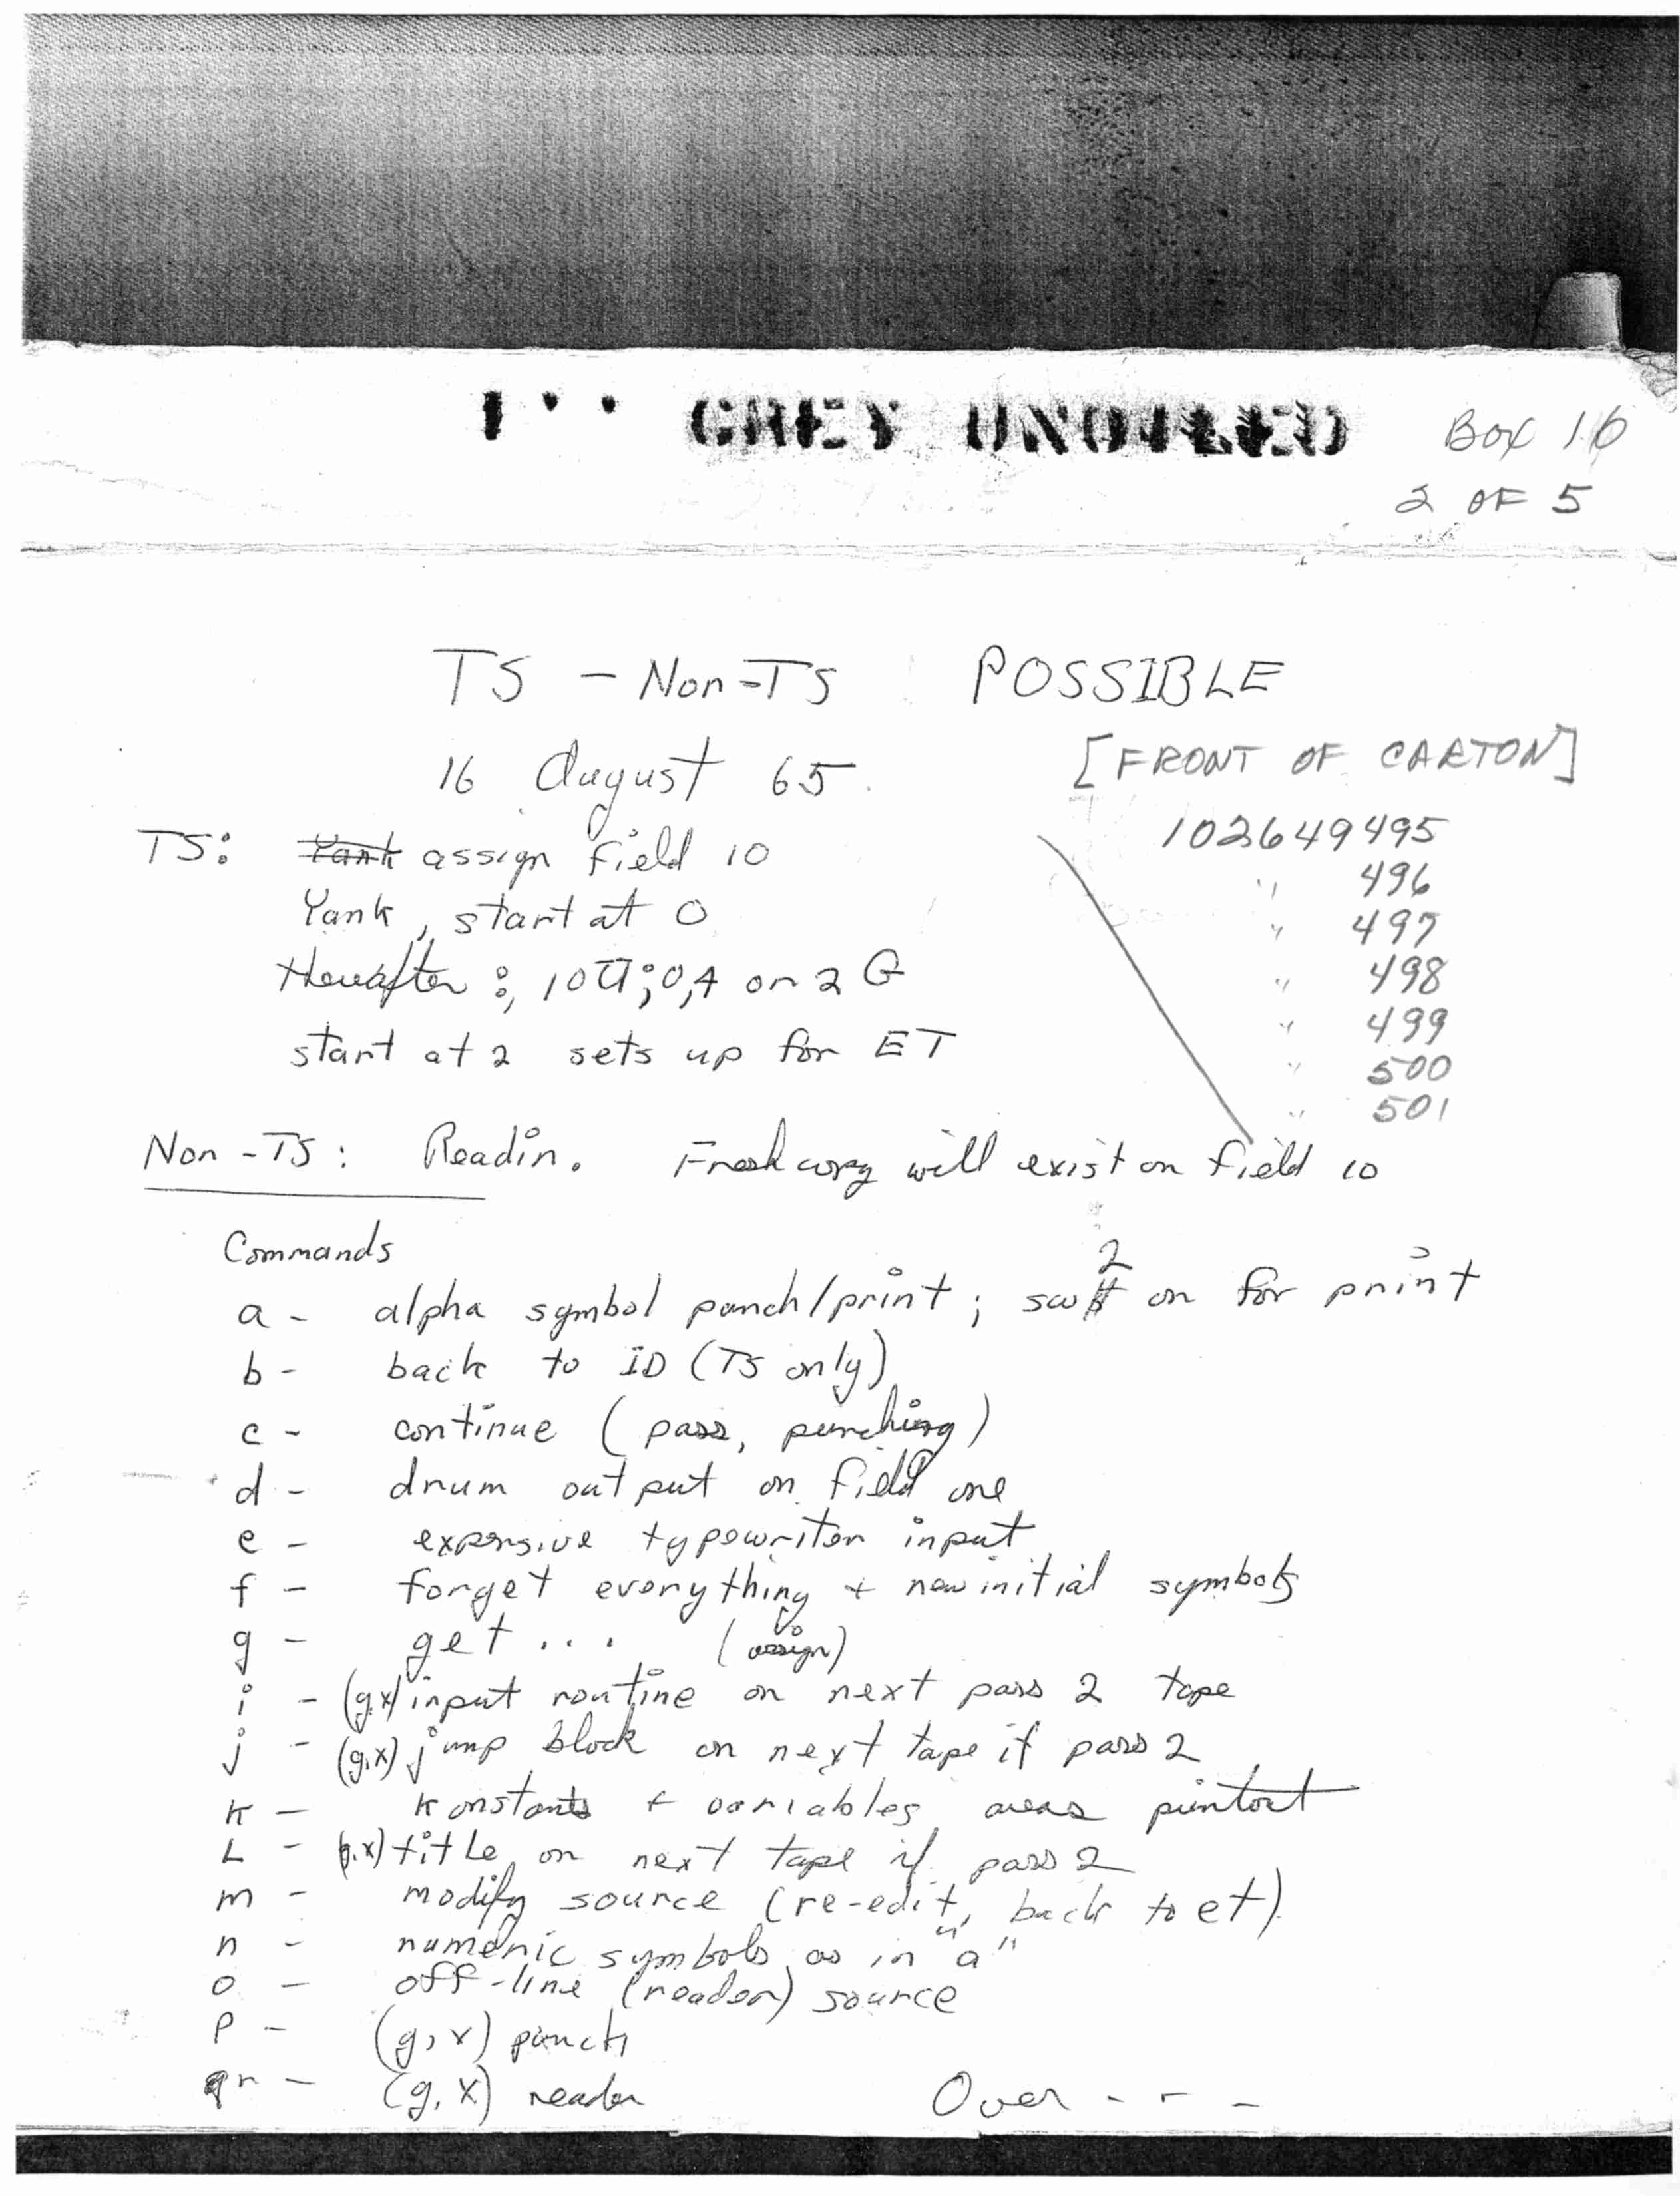 1'' GREY UNOILED
Box 16
2 OF 5
TS - Non-TS POSSIBLE
16 August 65
[FRONT OF CARTON]
102649495
" 496
" 497
" 498
" 499
" 500
" 501
TS: Yank assign field 10
Yank, start at 0
on 2 G
start at 2 sets up for ET
Non-TS: Readin. Fresh copy will exist on field 10
Commands
a - alpha symbol punch/print; sw 2 on for print
b - back to ID (TS only)
c - continue (pass, punching)
d - drum output on field one
e - expensive typewriter input
f - forget everything + new initial symbols
g - get ... (assign)
i - (g,x) input routine on next pass 2 tape
j - (g,x) jump block on next tape if pass 2
k - konstants + variables areas printout
L - (g,x) title on next tape if pass 2
m - modify source (re-edit, back to et)
n - numeric symbols as in "a"
o - off-line (reader) source
p - (g,x) punch
r - (g,x) reader
Over - - -